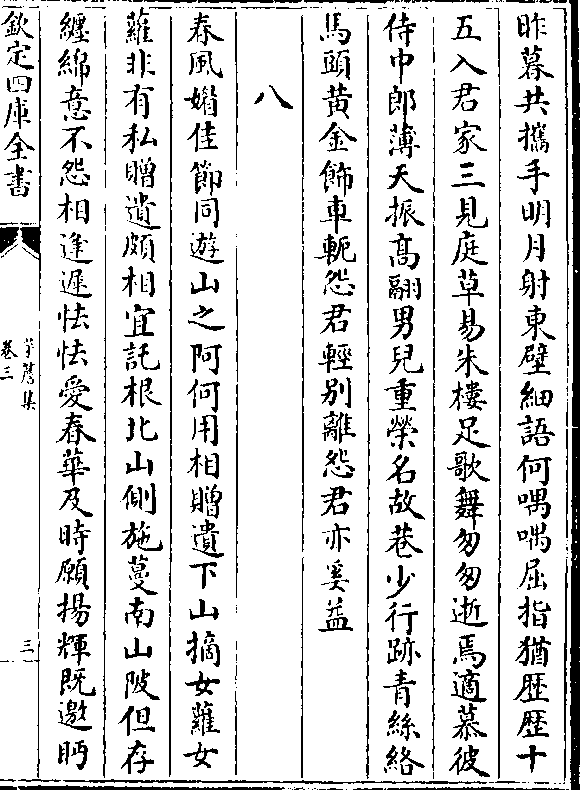 昨暮共攜手明月射東壁細語何喁喁屈指猶歴歴十
五入君家三見庭草易朱樓足歌舞匆匆逝焉適慕彼
侍中郎薄天振髙翮男兒重榮名故巷少行跡青絲絡
馬頭黄金飾車軛怨君輕别離怨君亦奚益
八
春風媚佳節同遊山之阿何用相贈遺下山摘女蘿女
蘿非有私贈遺頗相宜託根北山側施蔓南山陂但存
纏綿意不怨相逢遲怯怯愛春華及時願揚輝既邀眄
欽定四庫全書
卷三
三